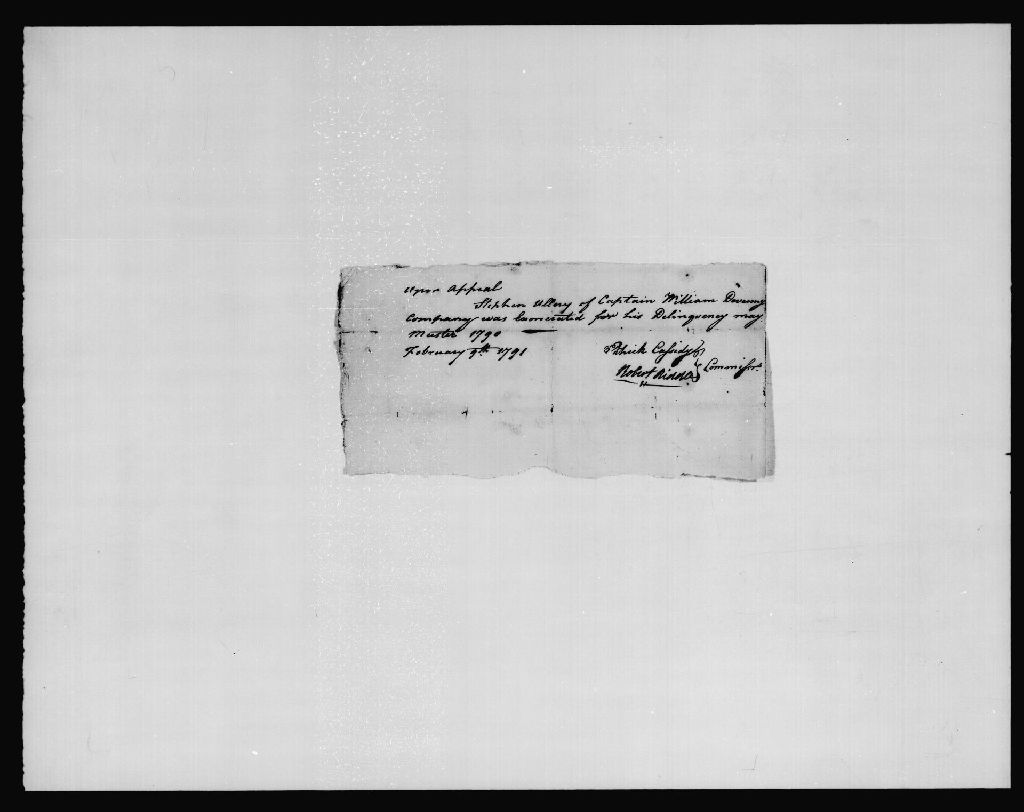 Upon Appeal
Stephen Ullery of Captain William Devenny
Company was Exonerated for his Delinquency may
Muster 1790
February 9th 1791
Patrick Cassidy
Robert Commissrs